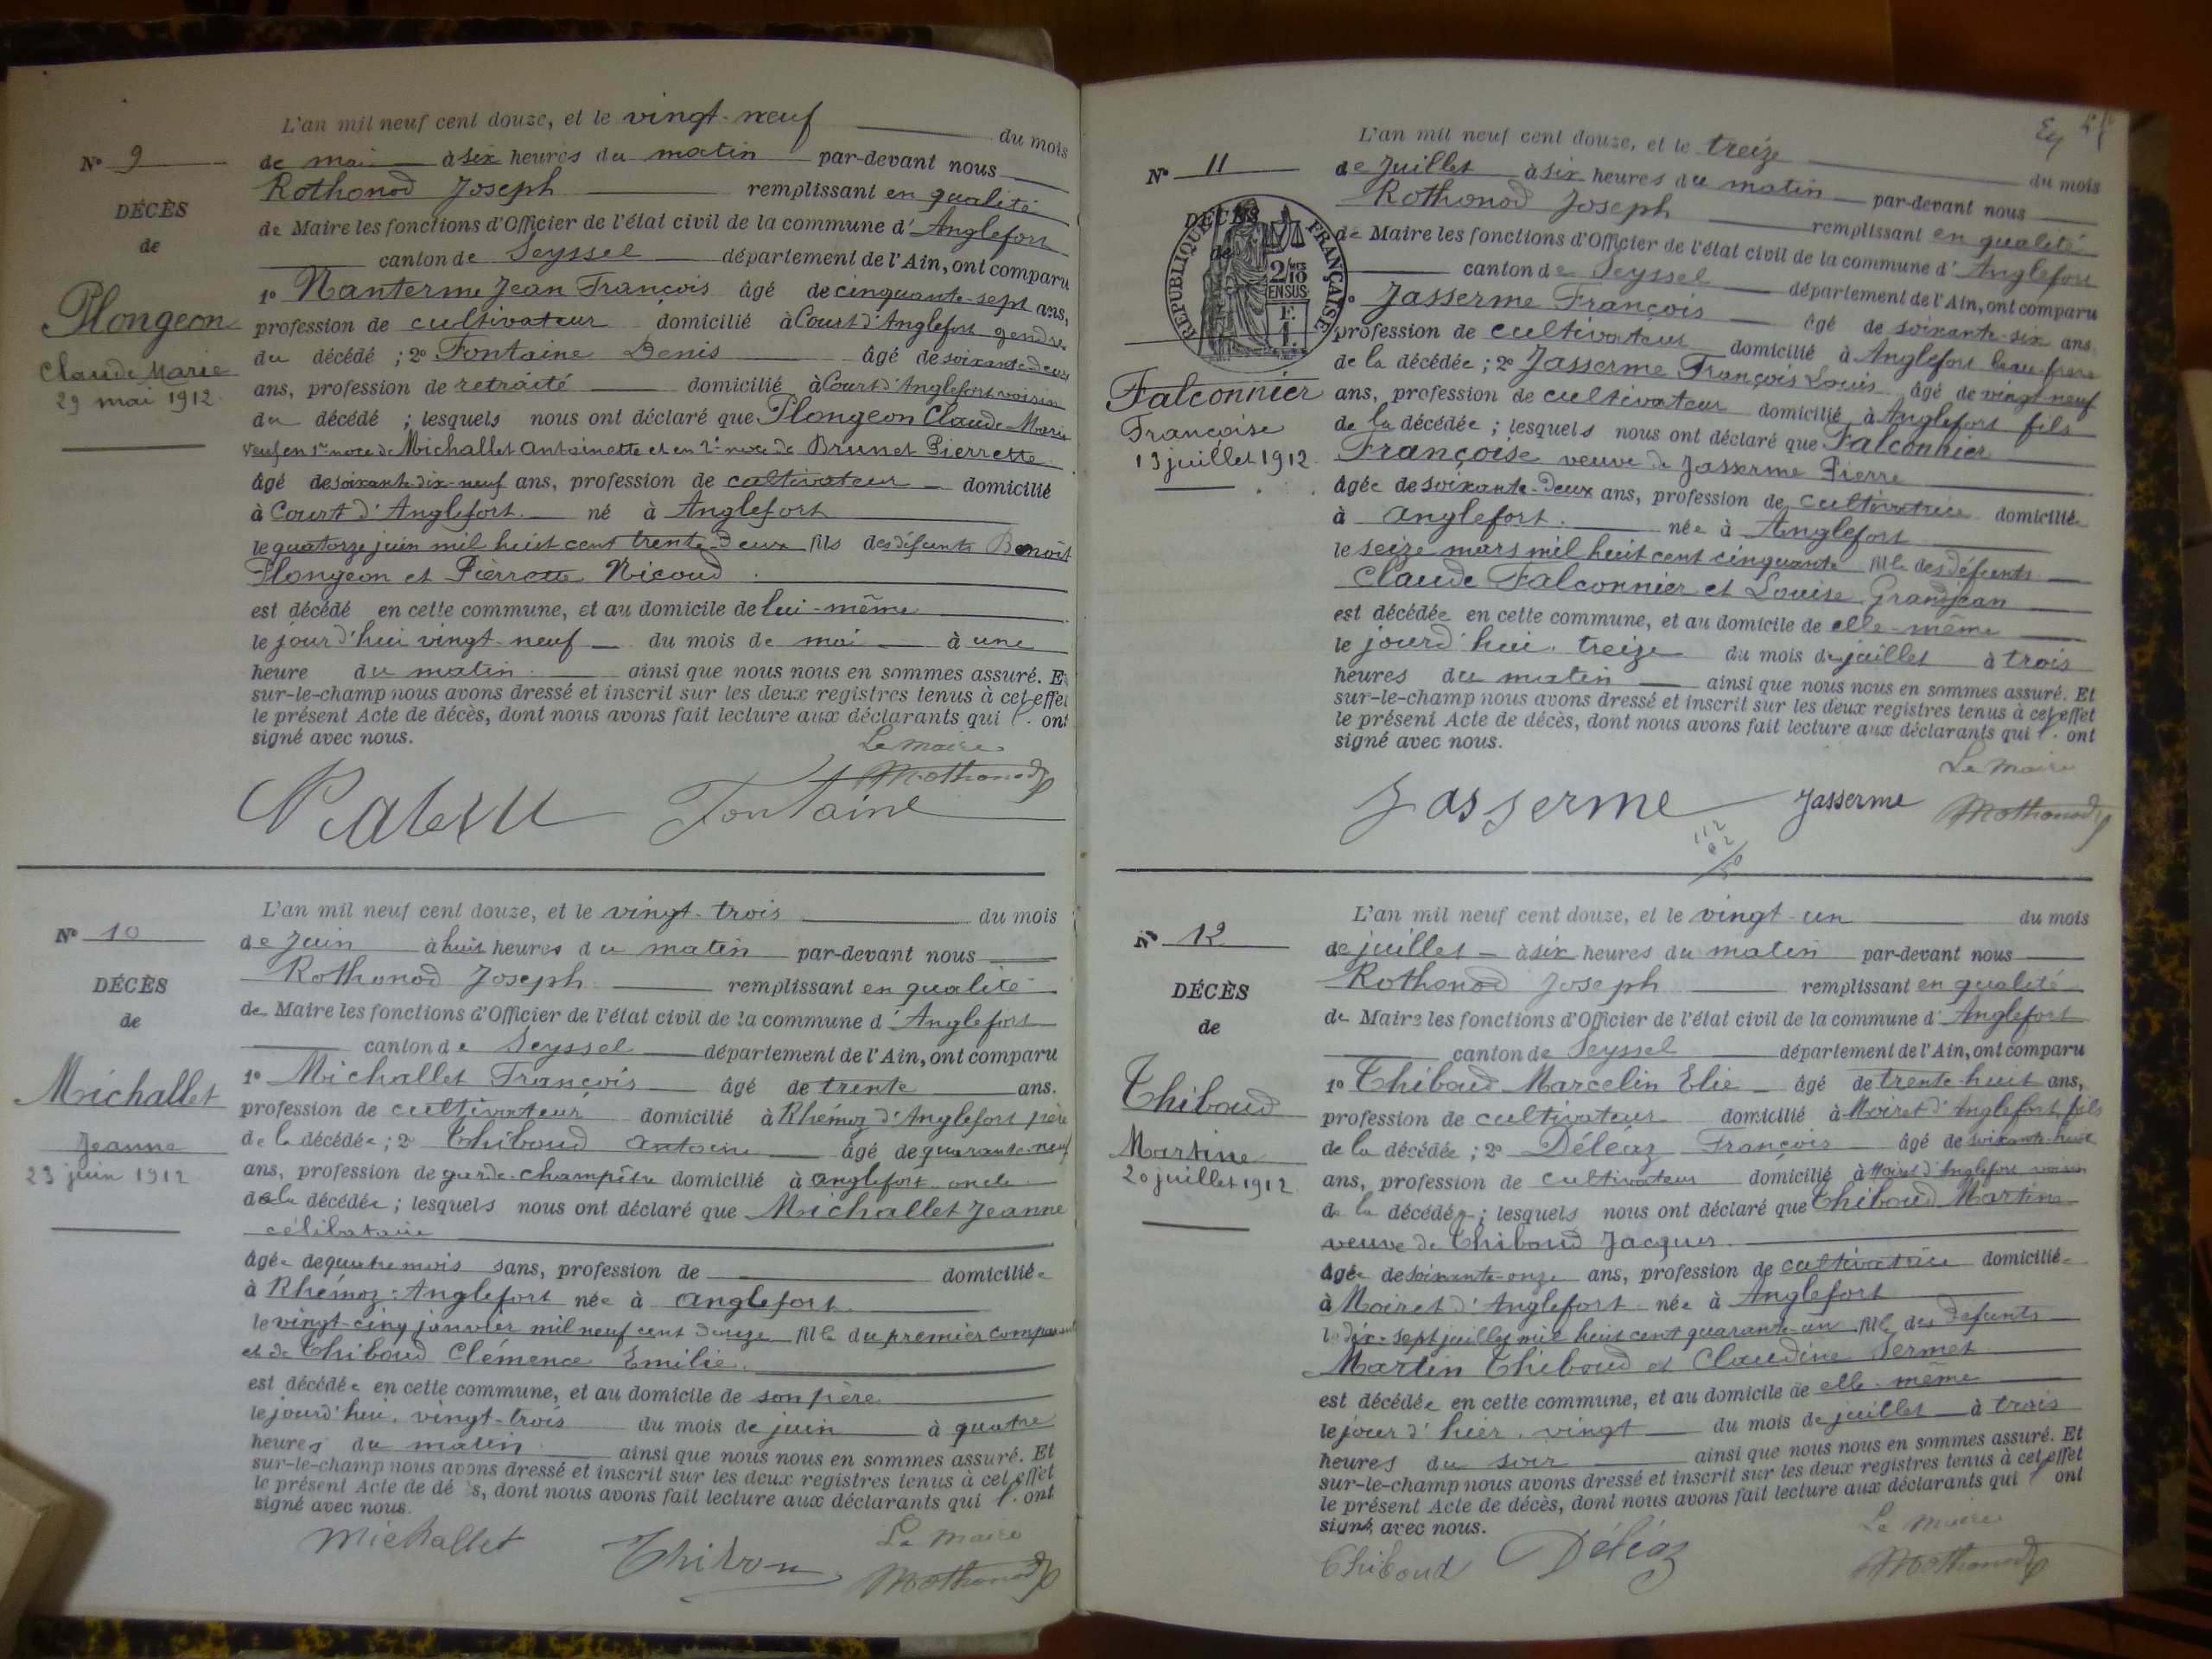 L'an mil neuf cent douze, et le vingt-neuf du mois
N° 9
de mai à six heures du matin par-devant nous
Rothonod Joseph remplissant en qualité
DÉCÈS
de Maire les fonctions d'Officier de l'état civil de la commune d'Anglefort
de
canton de Seyssel département de l'Ain, ont comparu
1° Nanterme Jean François âgé de cinquante-sept ans,
Plongeon
profession de cultivateur domicilié à Court d'Anglefort gendre
Claude Marie
du décédé ; 2° Fontaine Denis âgé de soixante deux
29 mai 1912.
ans, profession de retraité domicilié à Court d'Anglefort voisin
du décédé ; lesquels nous ont déclaré que Plongeon Claude Marie
veuf en 1re noce de Michallet Antoinette et en 2e noce de Brunet Pierrette
âgé de soixante-dix-neuf ans, profession de cultivateur domicilié
à Court d'Anglefort né à Anglefort
le quatorze juin mil huit cent trente-deux fils des défunts Benoît
Plongeon et Pierrette Nicoud
est décédé en cette commune, et au domicile de lui-même
le jourd'hui vingt-neuf du mois de mai à une
heure du matin ainsi que nous nous en sommes assuré. Et
sur-le-champ nous avons dressé et inscrit sur les deux registres tenus à cet effet
le présent Acte de décès, dont nous avons fait lecture aux déclarants qui l'ont
signé avec nous.
Le maire
Fontaine
L'an mil neuf cent douze, et le vingt-trois du mois
N° 10
de Juin à huit heures du matin par-devant nous
Rothonod Joseph remplissant en qualité
DÉCÈS
de Maire les fonctions d'Officier de l'état civil de la commune d'Anglefort
de
canton de Seyssel département de l'Ain, ont comparu
1° Michallet François âgé de trente ans.
Michallet
profession de cultivateur domicilié à Rhémoz d'Anglefort père
Jeanne
de la décédée ; 2° Thiboud Antoine âgé de quarante-neuf
23 juin 1912
ans, profession de garde-champêtre domicilié à Anglefort oncle
de la décédée ; lesquels nous ont déclaré que Michallet Jeanne
célibataire
âgée de quatre mois sans, profession de domiciliée
à Rhémoz-Anglefort née à Anglefort
le vingt-cinq janvier mil neuf cent douze fille du premier comparant
et de Thiboud Clémence Emilie.
est décédée en cette commune, et au domicile de son père
le jourd'hui. vingt-trois du mois de juin à quatre
heures du matin ainsi que nous nous en sommes assuré. Et
sur-le-champ nous avons dressé et inscrit sur les deux registres tenus à cet effet
le présent Acte de dé s, dont nous avons fait lecture aux déclarants qui l'ont
signé avec nous.
Michallet
Le maire
L'an mil neuf cent douze, et le treize du mois
N° 11
de Juillet à six heures du matin par-devant nous
Rothonod Joseph remplissant en qualité
DÉCÈS
de Maire les fonctions d'Officier de l'état civil de la commune d'Anglefort
de
canton de Seyssel département de l'Ain, ont comparu
RÉPUBLIQUE FRANÇAISE
2/10 mes
EN SUS
1° Jasserme François âgé de soixante-six ans
profession de cultivateur domicilié à Anglefort beau-frère
de la décédée ; 2° Jasserme François Louis âgé de vingt neuf
Falconnier
ans, profession de cultivateur domicilié à Anglefort fils
Françoise
de la décédée ; lesquels nous ont déclaré que Falconnier
13 juillet 1912.
Françoise veuve de Jasserme Pierre
âgée de soixante-deux ans, profession de cultivatrice domiciliée
à Anglefort née à Anglefort
le seize mars mil huit cent cinquante fille des défunts
Claude Falconnier et Louise Grandjean
est décédée en cette commune, et au domicile de elle-même
le jourd'hui. treize du mois de juillet à trois
heures du matin ainsi que nous nous en sommes assuré. Et
sur-le-champ nous avons dressé et inscrit sur les deux registres tenus à cet effet
le présent Acte de décès, dont nous avons fait lecture aux déclarants qui l'ont
signé avec nous.
Le Maire
Jasserme Jasserme
L'an mil neuf cent douze, et le vingt-un du mois
N° 12
de juillet à six heures du matin par-devant nous
Rothonod Joseph remplissant en qualité
DÉCÈS
de Maire les fonctions d'Officier de l'état civil de la commune d'Anglefort
de
canton de Seyssel département de l'Ain, ont comparu
1° Thiboud Marcelin Elie âgé de trente-huit ans,
Thiboud
profession de cultivateur domicilié à Moiret d'Anglefort fils
Martine
de la décédée ; 2° Déléaz François âgé de soixante-huit
20 juillet 1912
ans, profession de cultivateur domicilié à Moiret d'Anglefort voisin
de la décédée ; lesquels nous ont déclaré que Thiboud Martine
veuve de Thiboud Jacques
âgée de soixante-onze ans, profession de cultivatrice domiciliée
à Moiret d'Anglefort née à Anglefort
le dix-sept juillet mil huit cent quarante-un fille des défunts
Martin Thiboud et Claudine Sermet
est décédée en cette commune, et au domicile de elle-même
le jour d'hier. vingt du mois de juillet à trois
heures du soir ainsi que nous nous en sommes assuré. Et
sur-le-champ nous avons dressé et inscrit sur les deux registres tenus à cet effet
le présent Acte de décès, dont nous avons fait lecture aux déclarants qui l'ont
signé avec nous.
Le Maire
Thiboud Déléaz